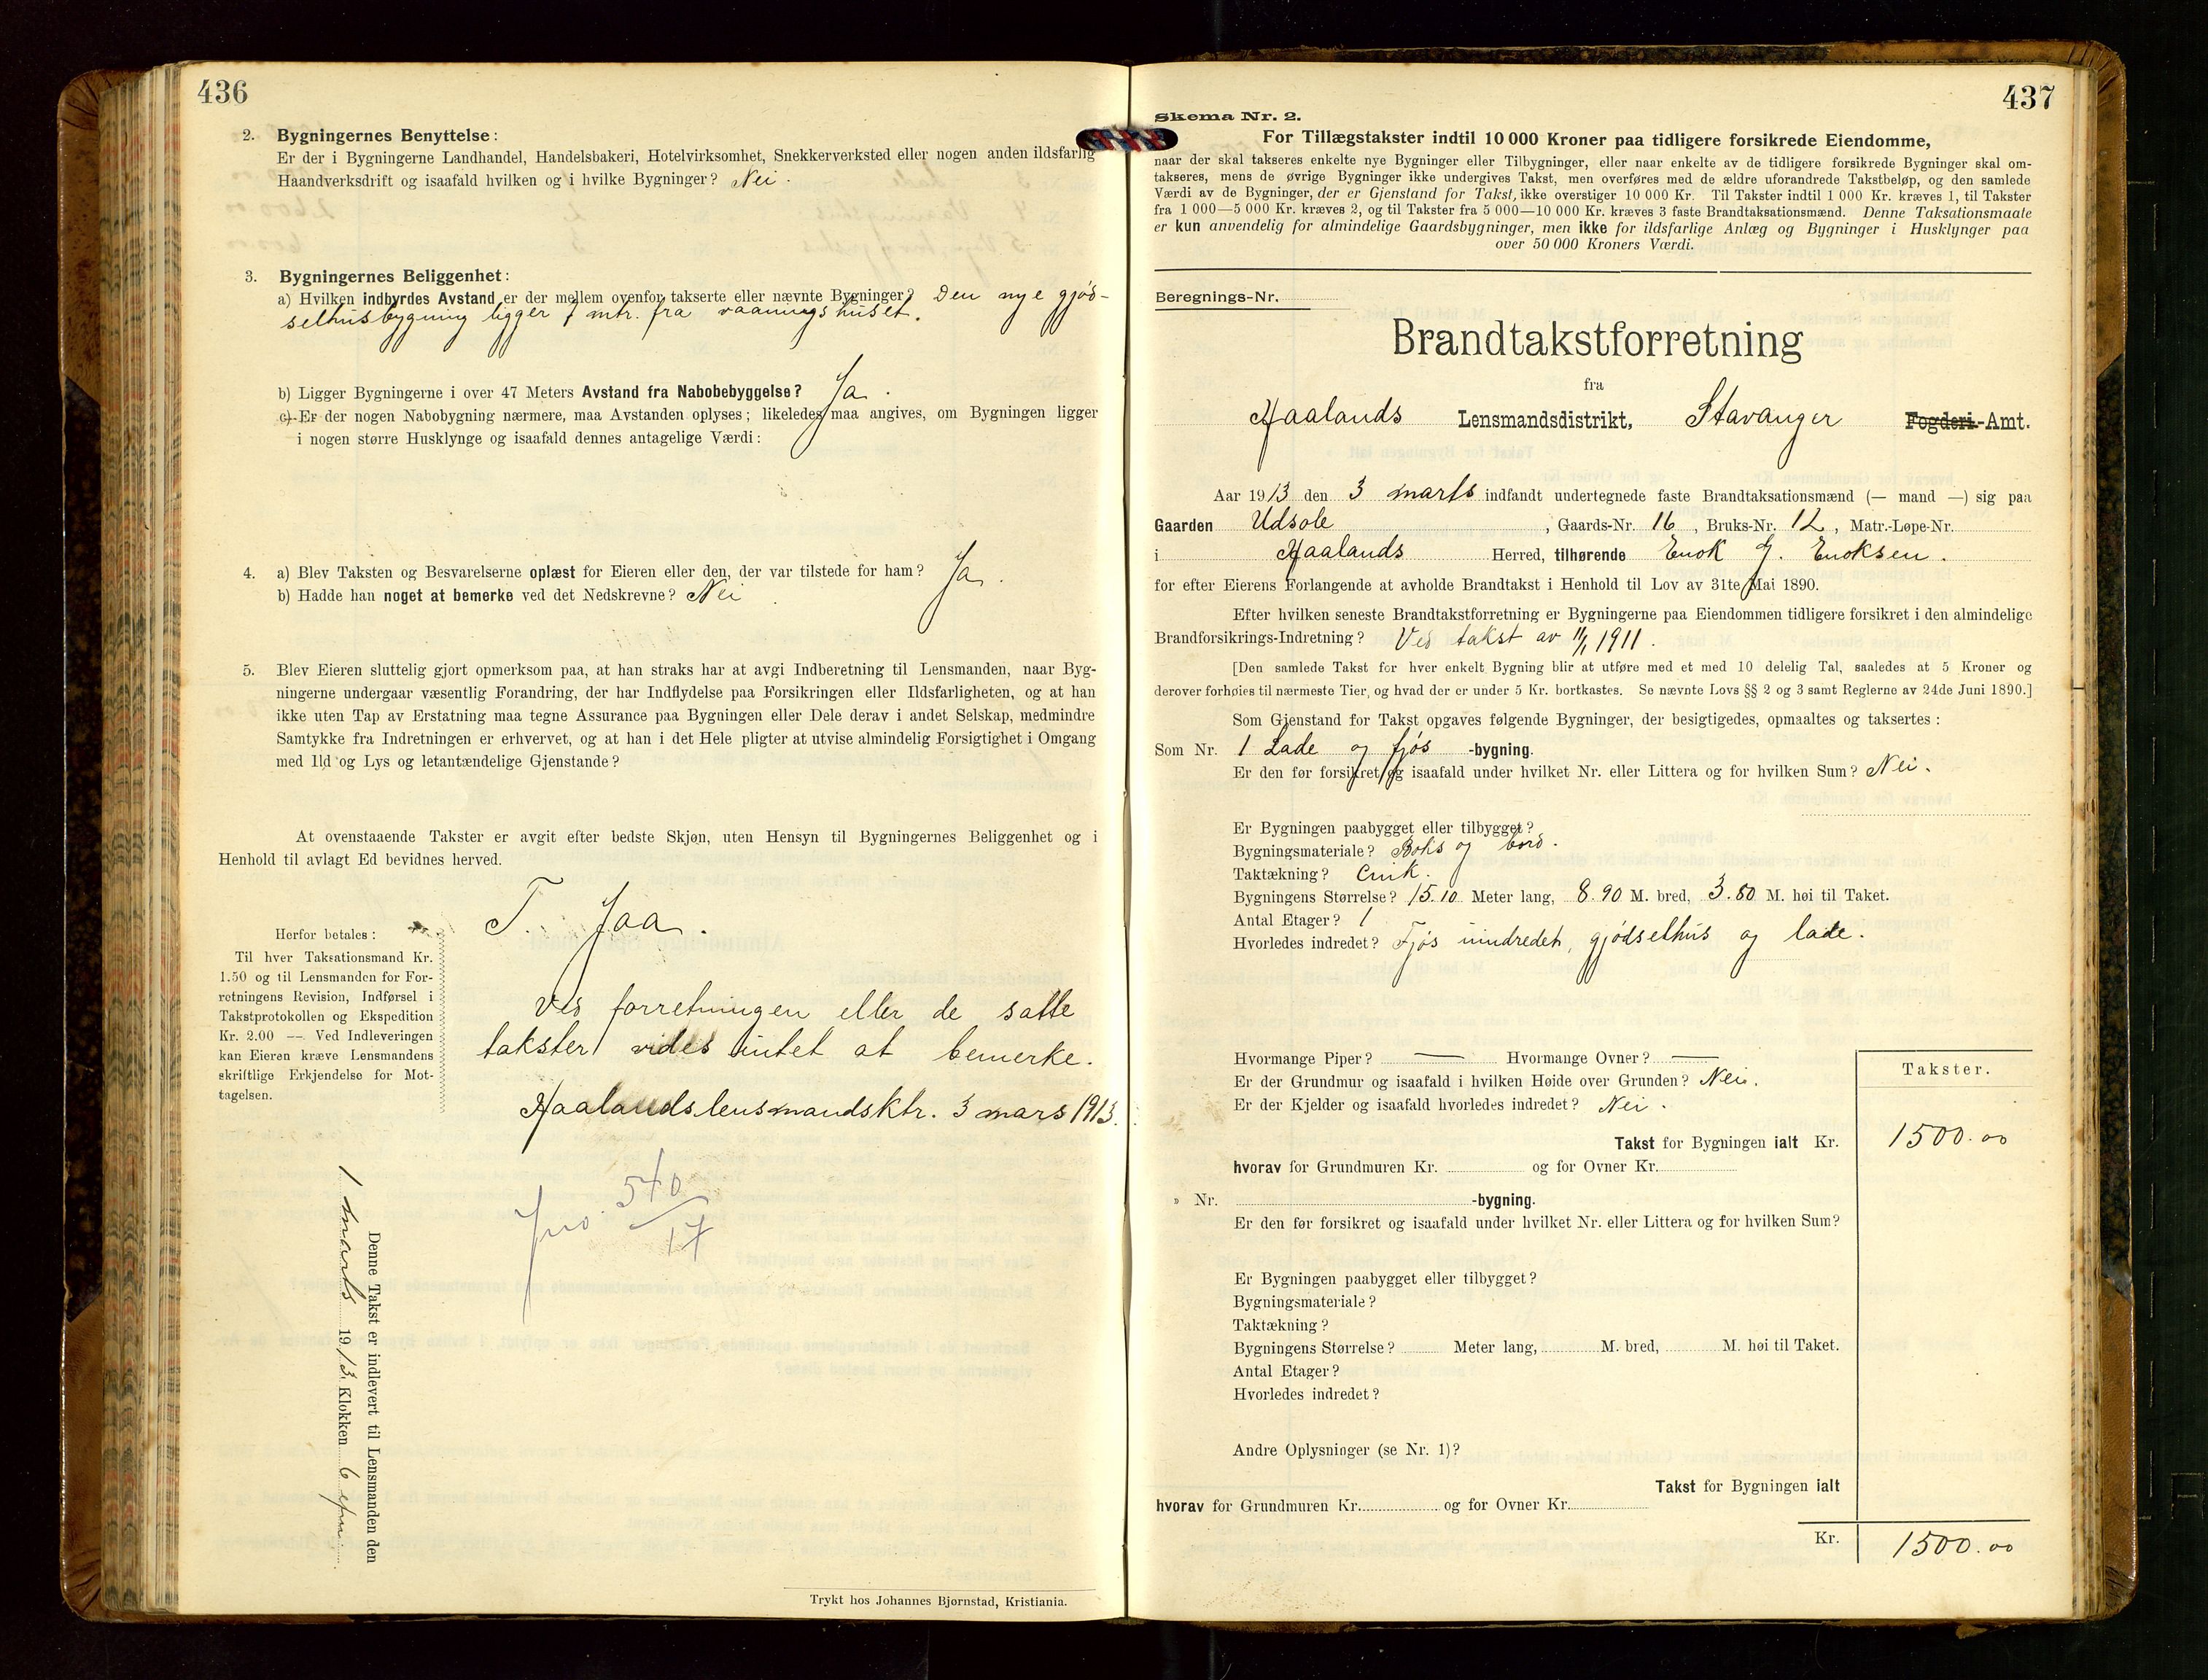 436
2. Bygningernes Benyttelse:
Er der i Bygningerne Landhandel, Handelsbakeri, Hotelvirksomhet, Snekkerverksted eller nogen anden ildsfarlig
Haandverksdrift og isaafald hvilken og i hvilke Bygninger? Nei.
3. Bygningernes Beliggenhet:
a) Hvilken indbyrdes Avstand er der mellem ovenfor takserte eller nævnte Bygninger? Den nye gjød-
selhusbygning ligger 7 mtr. fra vaaningshuset.
b) Ligger Bygningerne i over 47 Meters Avstand fra Nabobebyggelse? Ja.
c) Er der nogen Nabobygning nærmere, maa Avstanden oplyses; likeledes maa angives, om Bygningen ligger
i nogen større Husklynge og isaafald dennes antagelige Værdi:
4. a) Blev Taksten og Besvarelserne oplæst for Eieren eller den, der var tilstede for ham? Ja.
b) Hadde han noget at bemerke ved det Nedskrevne? Nei
5. Blev Eieren sluttelig gjort opmerksom paa, at han straks har at avgi Indberetning til Lensmanden, naar Byg-
ningerne undergaar væsentlig Forandring, der har Indflydelse paa Forsikringen eller Ildsfarligheten, og at han
ikke uten Tap av Erstatning maa tegne Assurance paa Bygningen eller Dele derav i andet Selskap, medmindre
Samtykke fra Indretningen er erhvervet, og at han i det Hele pligter at utvise almindelig Forsigtighet i Omgang
med Ild og Lys og letantændelige Gjenstande?
At ovenstaaende Takster er avgit efter bedste Skjøn, uten Hensyn til Bygningernes Beliggenhet og i
Henhold til avlagt Ed bevidnes herved.
T. Jaa.
Herfor betales:
Til hver Taksationsmand Kr.
1.50 og til Lensmanden for For-
retningens Revision, Indførsel i
Takstprotokollen og Ekspedition
Kr. 2.00 — Ved Indleveringen
kan Eieren kræve Lensmandens
skriftlige Erkjendelse for Mot-
tagelsen.
Ved forretningen eller de satte
takster vides intet at bemerke.
Haalands lensmandsktr. 3 mars 1913.
540
17
Denne Takst er indlevert til Lensmanden den
1 marts 1913. Klokken 6 epm
Trykt hos Johannes Bjørnstad, Kristiania.
437
Skema Nr. 2.
For Tillægstakster indtil 10 000 Kroner paa tidligere forsikrede Eiendomme,
naar der skal takseres enkelte nye Bygninger eller Tilbygninger, eller naar enkelte av de tidligere forsikrede Bygninger skal om-
takseres, mens de øvrige Bygninger ikke undergives Takst, men overføres med de ældre uforandrede Takstbeløp, og den samlede
Værdi av de Bygninger, der er Gjenstand for Takst, ikke overstiger 10 000 Kr. Til Takster indtil 1 000 Kr. kræves 1, til Takster
fra 1 000—5 000 Kr. kræves 2, og til Takster fra 5 000—10 000 Kr. kræves 3 faste Brandtaksationsmænd. Denne Taksationsmaate
er kun anvendelig for almindelige Gaardsbygninger, men ikke for ildsfarlige Anlæg og Bygninger i Husklynger paa
over 50 000 Kroners Værdi.
Beregnings-Nr.
Brandtakstforretning
fra
Haalands Lensmandsdistrikt, Stavanger Fogderi-Amt.
Aar 1913 den 3 marts indfandt undertegnede faste Brandtaksationsmænd (— mand —) sig paa
Gaarden Udsole, Gaards-Nr. 16, Bruks-Nr. 12, Matr.-Løpe-Nr.
i Haalands Herred, tilhørende Enok G. Enoksen.
for efter Eierens Forlangende at avholde Brandtakst i Henhold til Lov av 31te Mai 1890.
Efter hvilken seneste Brandtakstforretning er Bygningerne paa Eiendommen tidligere forsikret i den almindelige
Brandforsikrings-Indretning? Ved takst av 11/1 1911.
[Den samlede Takst for hver enkelt Bygning blir at utføre med et med 10 delelig Tal, saaledes at 5 Kroner og
derover forhøies til nærmeste Tier, og hvad der er under 5 Kr. bortkastes. Se nævnte Lovs §§ 2 og 3 samt Reglerne av 24de Juni 1890.]
Som Gjenstand for Takst opgaves følgende Bygninger, der besigtigedes, opmaaltes og taksertes:
Som Nr. 1 Lade og fjøs -bygning.
Er den før forsikret og isaafald under hvilket Nr. eller Littera og for hvilken Sum? Nei.
Er Bygningen paabygget eller tilbygget?
Bygningsmateriale? Boks og bord.
Taktækning? Cink.
Bygningens Størrelse? 15.10 Meter lang, 8.90 M. bred, 3.80 M. høi til Taket.
Antal Etager? 1
Hvorledes indredet? Fjøs uindredet, gjødselhus og lade.
Hvormange Piper? — Hvormange Ovner? —
Er der Grundmur og isaafald i hvilken Høide over Grunden? Nei.
Er der Kjelder og isaafald hvorledes indredet? Nei.
Takster.
Takst for Bygningen ialt Kr. 1500.00
hvorav for Grundmuren Kr. og for Ovner Kr.
" Nr. -bygning.
Er den før forsikret og isaafald under hvilket Nr. eller Littera og for hvilken Sum?
Er Bygningen paabygget eller tilbygget?
Bygningsmateriale?
Taktækning?
Bygningens Størrelse? Meter lang, M. bred, M. høi til Taket.
Antal Etager?
Hvorledes indredet?
Andre Oplysninger (se Nr. 1)?
Takst for Bygningen ialt
hvorav for Grundmuren Kr. og for Ovner Kr.
Kr. 1500.00